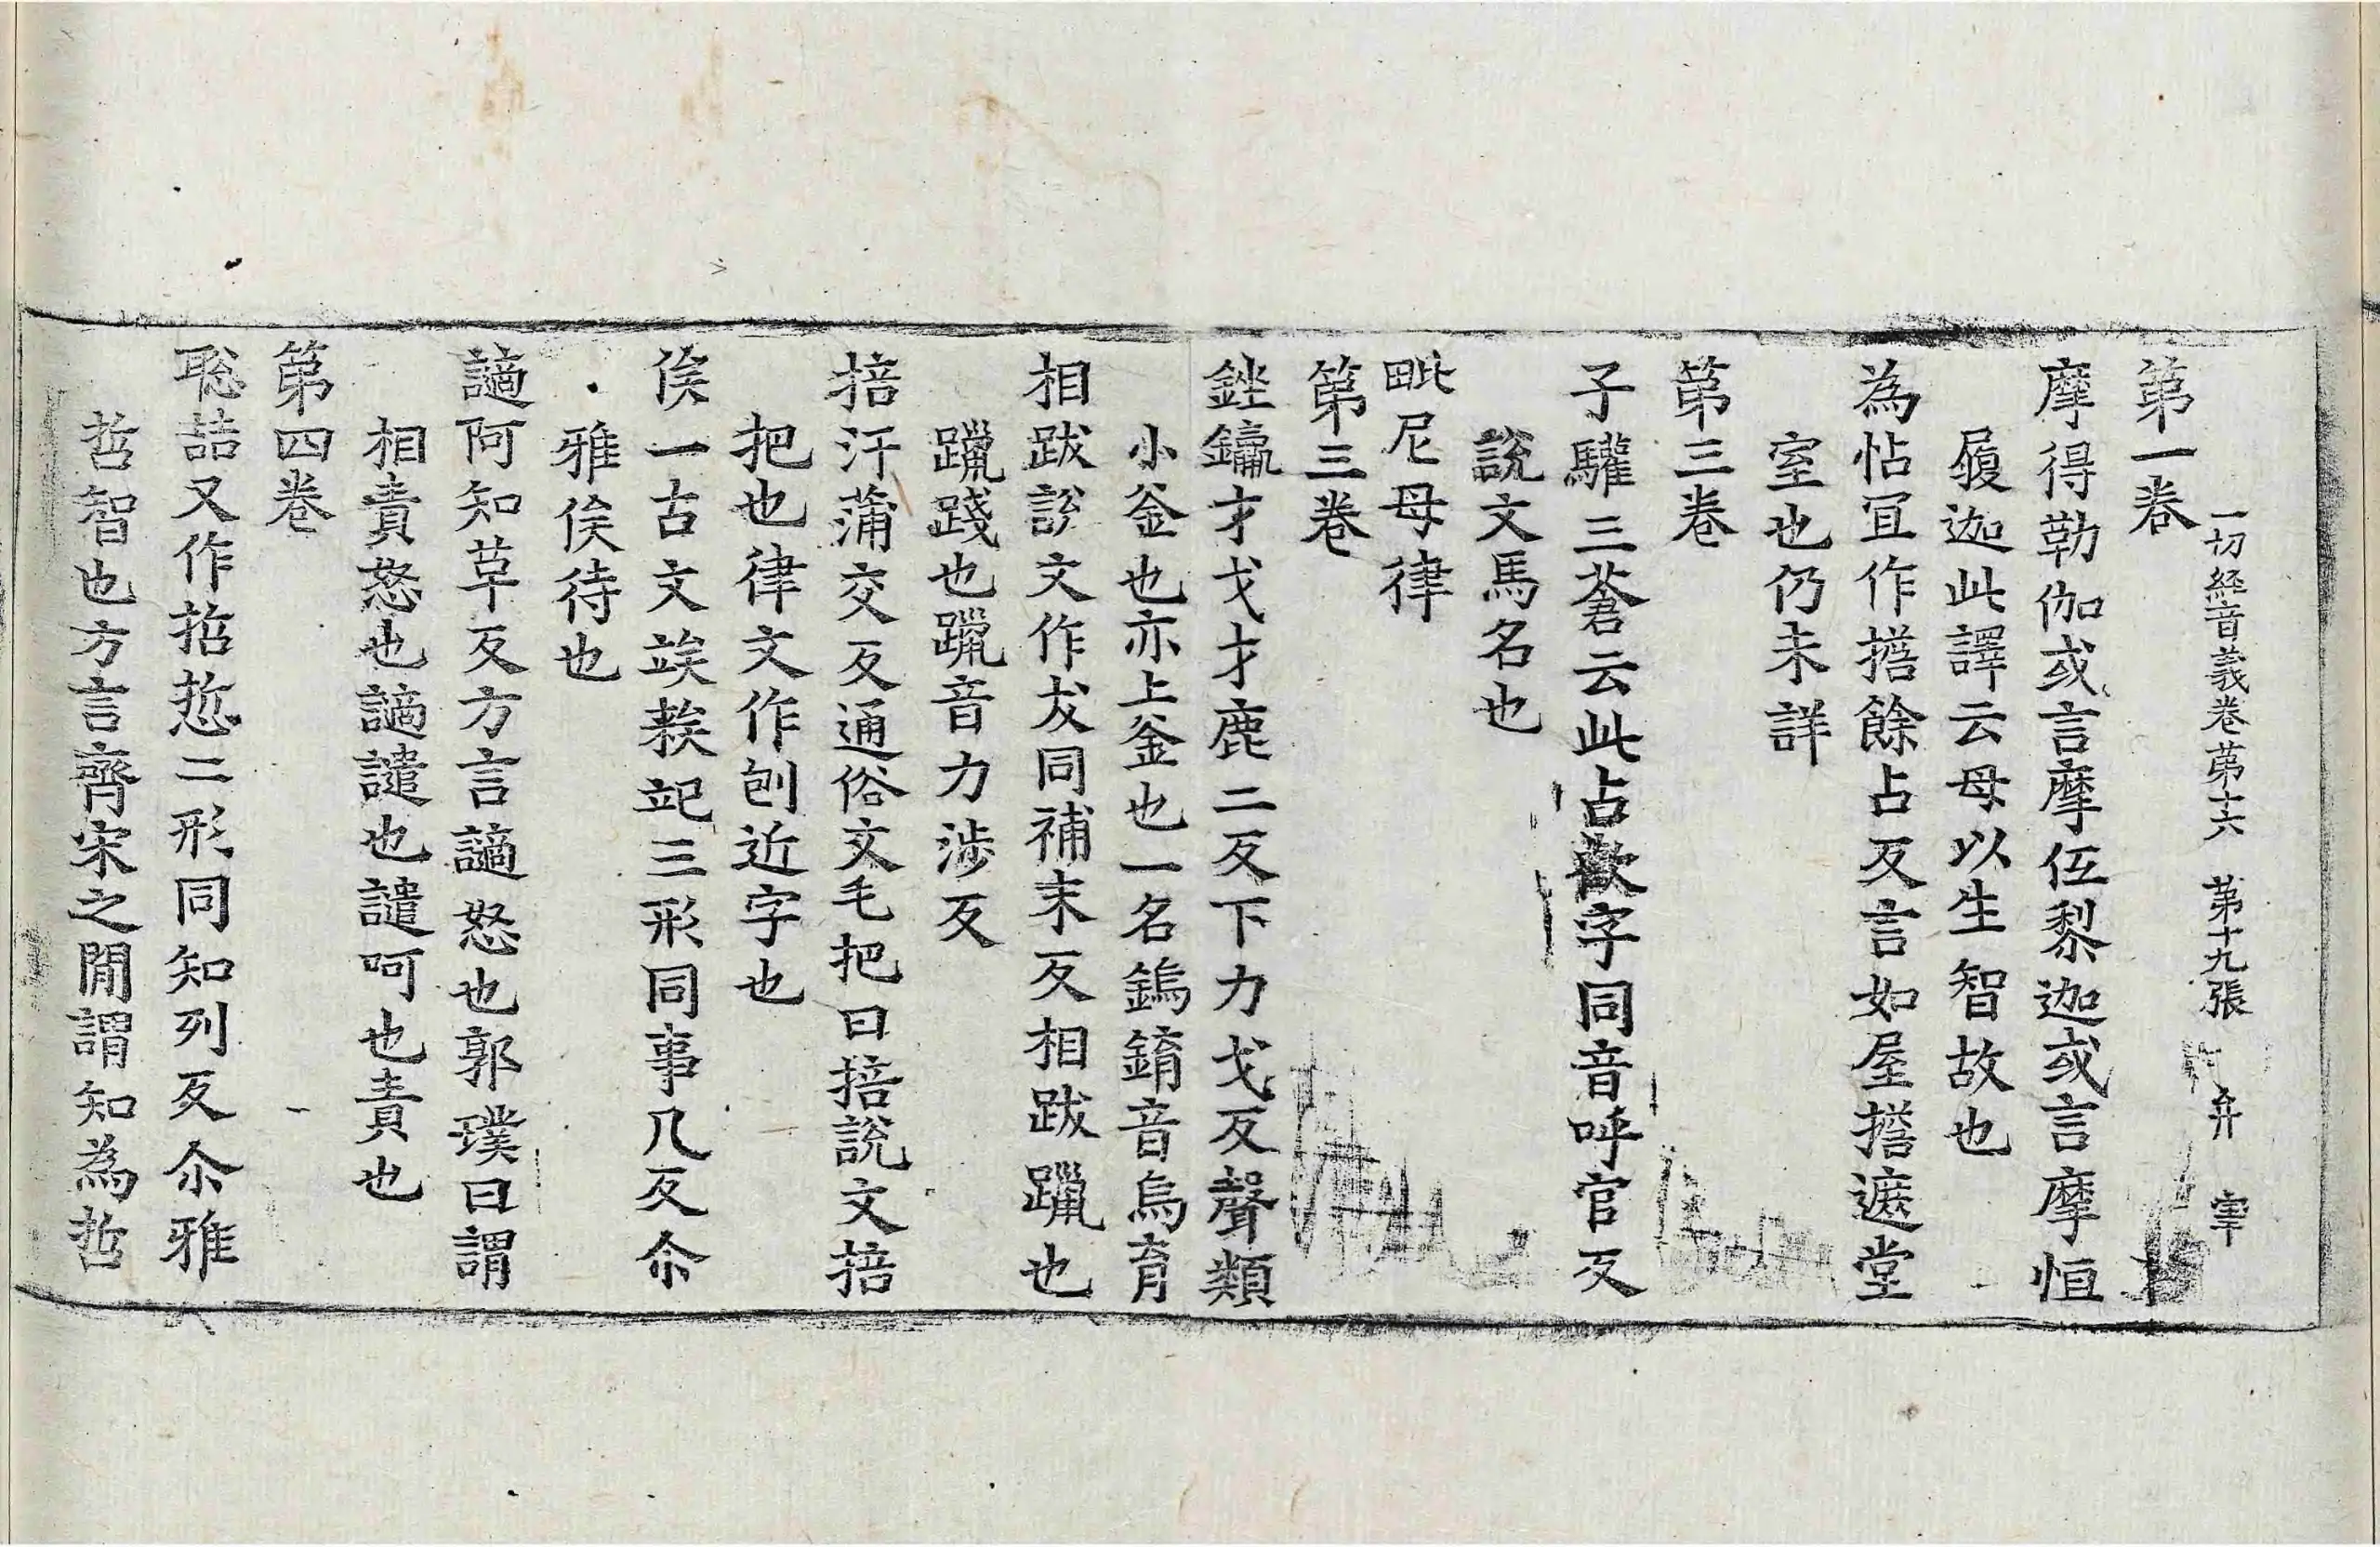 一切経音義卷第十六 第十九張 弁 宰
第一卷
摩得勒伽或言摩伍棃迦或言摩恒
履迦此譯云母以生智故也
為怗冝作㩉餘占反言如屋㩉遮堂
室也仍未詳
第三卷
子驩三蒼云此古歡字同音呼官反
說文馬名也
毗尼母律
第三卷
銼鑹才戈才鹿二反下力戈反聲類
小釜也亦上釜也一名鎢錥音烏育
相跋說文作犮同補末反相跋躐也
躐踐也躐音力涉反
掊汗蒲交反通俗文毛把曰掊說文掊
把也律文作刨近字也
俟一古文竢𥏳𥩳三形同事几反尒
雅俟待也
讁阿知革反方言讁怒也郭璞曰謂
相責怒也讁譴也譴呵也責也
第四卷
聡喆又作𢭆悊二形同知列反尒雅
哲智也方言齊宋之閒謂知為哲